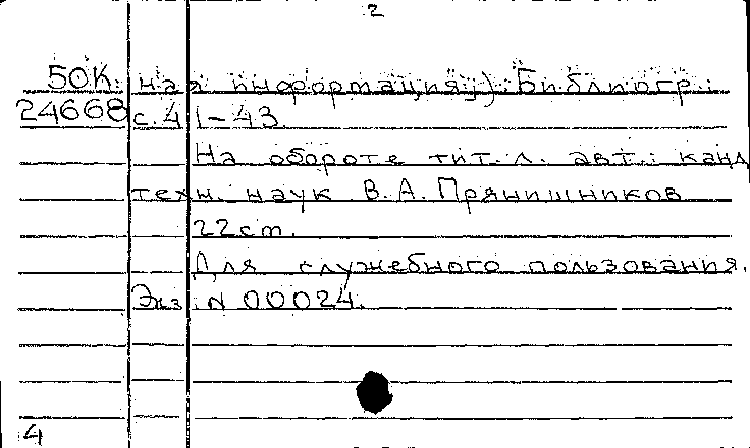 2
50К. ная информация). Библиогр.:
24668 с. 41-43.
На обороте тит. л. авт.: канд
техн. наук В.А. Прянишников
22см.
Для служебного пользования.
Экз. N 00024.
4